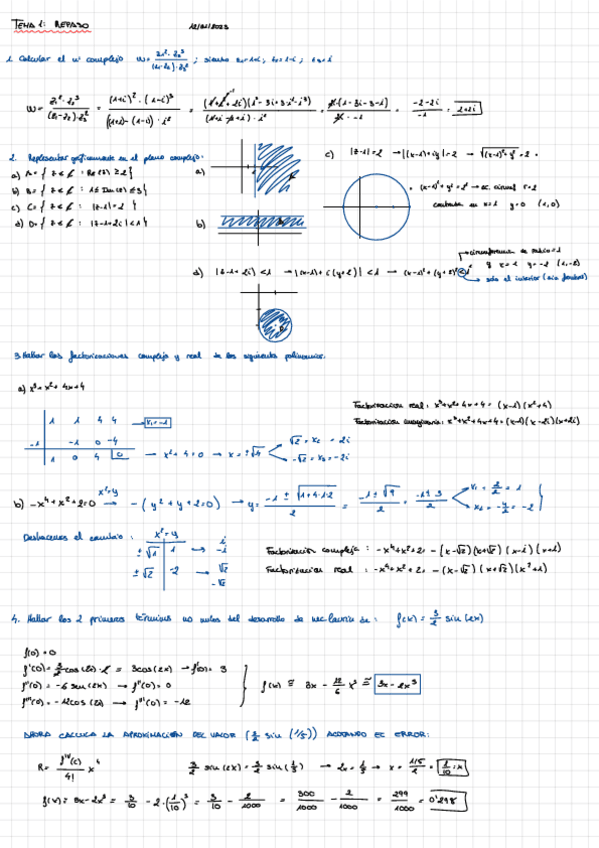 TEMA 1: REPASO
12/01/2023
1. Calcular el nº complejo W = z₁² · z₂³ / (z₁-z₂) · z₃² ; siendo z₁=1+i, z₂=1-i, z₃=i
W = z₁² · z₂³ / (z₁-z₂) · z₃² = (1+i)² · (1-i)³ / ((1+i)-(1-i)) · i² = = = -2-2i / -1 = 2+2i
2. Representar gráficamente en el plano complejo.
a) A = { z ∈ ℂ : Re(z) ≥ 2 }
b) B = { z ∈ ℂ : 1 ≤ Im(z) ≤ 3 }
c) C = { z ∈ ℂ : |z-1| = 2 }
d) D = { z ∈ ℂ : |z-1+2i| < 1 }
a)
b)
c) |z-1| = 2 → |(x-1)+iy| = 2 → √(x-1)²+y² = 2
• (x-1)²+y² = 2² → ec. circunf r=2
centrada en x=1 y=0 (1,0)
d) |z-1+2i| < 1 → |(x-1)+i(y+2)| < 1 → (x-1)²+(y+2)² < 1²
→ circunferencia de radio = 1
y x=1 y=-2 (1,-2)
→ solo el interior (sin frontera)
3. Hallar las factorizaciones compleja y real de los siguientes polinomios.
a) x³+x²+4x+4
1 1 4 4 → x₁=-1
-1 -1 0 -4
1 0 4 0 → x²+4=0 → x=±√4
√2 = x₂ = 2i
-√2 = x₃ = -2i
Factorización real: x³+x²+4x+4 = (x-1)(x²+4)
Factorización imaginaria: x³+x²+4x+4 = (x-1)(x-2i)(x+2i)
b) -x⁴+x²+2=0 x²=y → -(y²+y+2=0) → y = -1 ± √1+4·1·2 / 2 = -1±√9 / 2 = -1±3 / 2
x₁ = 2/2 = 1
x₂ = -4/2 = -2
Deshacemos el cambio: x²=y
±√1 1 → i -i
±√2 -2 → √2 -√2
Factorización compleja: -x⁴+x²+2= -(x-√2)(x+√2)(x-i)(x+i)
Factorización real: -x⁴+x²+2= -(x-√2)(x+√2)(x²+1)
4. Hallar los 2 primeros términos no nulos del desarrollo de McLaurin de: f(x) = 3/2 sin(2x)
f(0) = 0
f'(0) = 3/2 cos(2x)·2 = 3cos(2x) → f'(0) = 3
f''(0) = -6 sen(2x) → f''(0) = 0
f'''(0) = -12cos(2x) → f'''(0) = -12
f(x) ≅ 3x - 12/6 x³ ≅ 3x-2x³
AHORA CALCULA LA APROXIMACIÓN DEL VALOR (3/2 sin (1/5)) ACOTANDO EL ERROR:
R = fᴵⱽ(c) / 4! x⁴
3/2 sin(2x) = 3/2 sin(1/5) → 2x = 1/5 → x = 1/5 / 2 = 1/10 = x
f(x) = 3x-2x³ = 3/10 - 2·(1/10)³ = 3/10 - 2/1000 = 300/1000 - 2/1000 = 299/1000 = 0'298